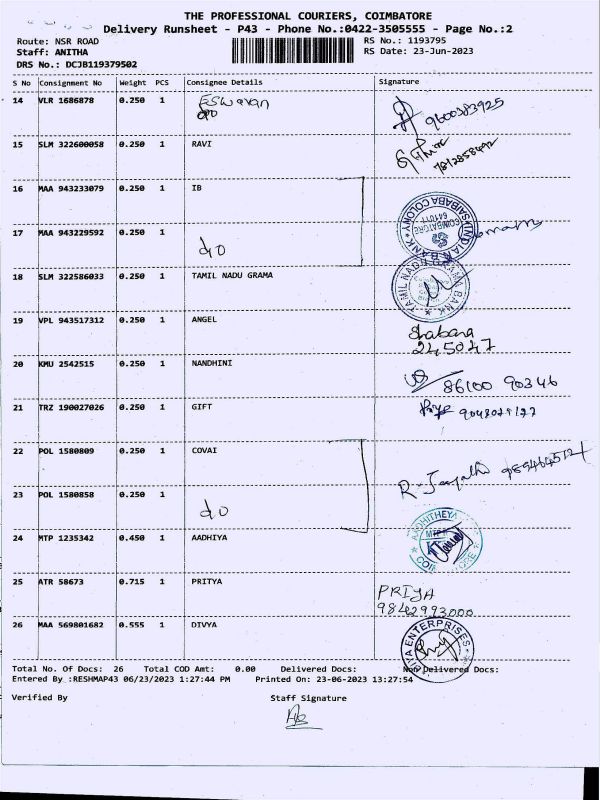 THE PROFESSIONAL COURIERS, COIMBATORE
Delivery Runsheet - P43 - Phone No.:0422-3505555 - Page No.:2
Route: NSR ROAD
RS No.: 1193795
Staff: ANITHA
RS Date: 23-Jun-2023
DRS No.: DCJB119379502
S No Consignment No Weight PCS Consignee Details Signature
14 VLR 1686878 0.250 1 Eswaran 9600383925
15 SLM 322600058 0.250 1 RAVI
16 MAA 943233079 0.250 1 IB
17 MAA 943229592 0.250 1 do
INDIAN BANK SAIBABA COLONY COIMBATORE 641011
18 SLM 322586033 0.250 1 TAMIL NADU GRAMA
TAMIL NADU GRAMA BANK
19 VPL 943517312 0.250 1 ANGEL
245047
20 KMU 2542515 0.250 1 NANDHINI 86100 90346
21 TRZ 190027026 0.250 1 GIFT
22 POL 1580809 0.250 1 COVAI
23 POL 1580858 0.250 1 do
24 MTP 1235342 0.450 1 AADHIYA
25 ATR 58673 0.715 1 PRITYA PRIYA
9842993000
26 MAA 569801682 0.555 1 DIVYA
ENTERPRISES
Total No. Of Docs: 26 Total COD Amt: 0.00 Delivered Docs: Non Delivered Docs:
Entered By :RESHMAP43 06/23/2023 1:27:44 PM Printed On: 23-06-2023 13:27:54
Verified By Staff Signature